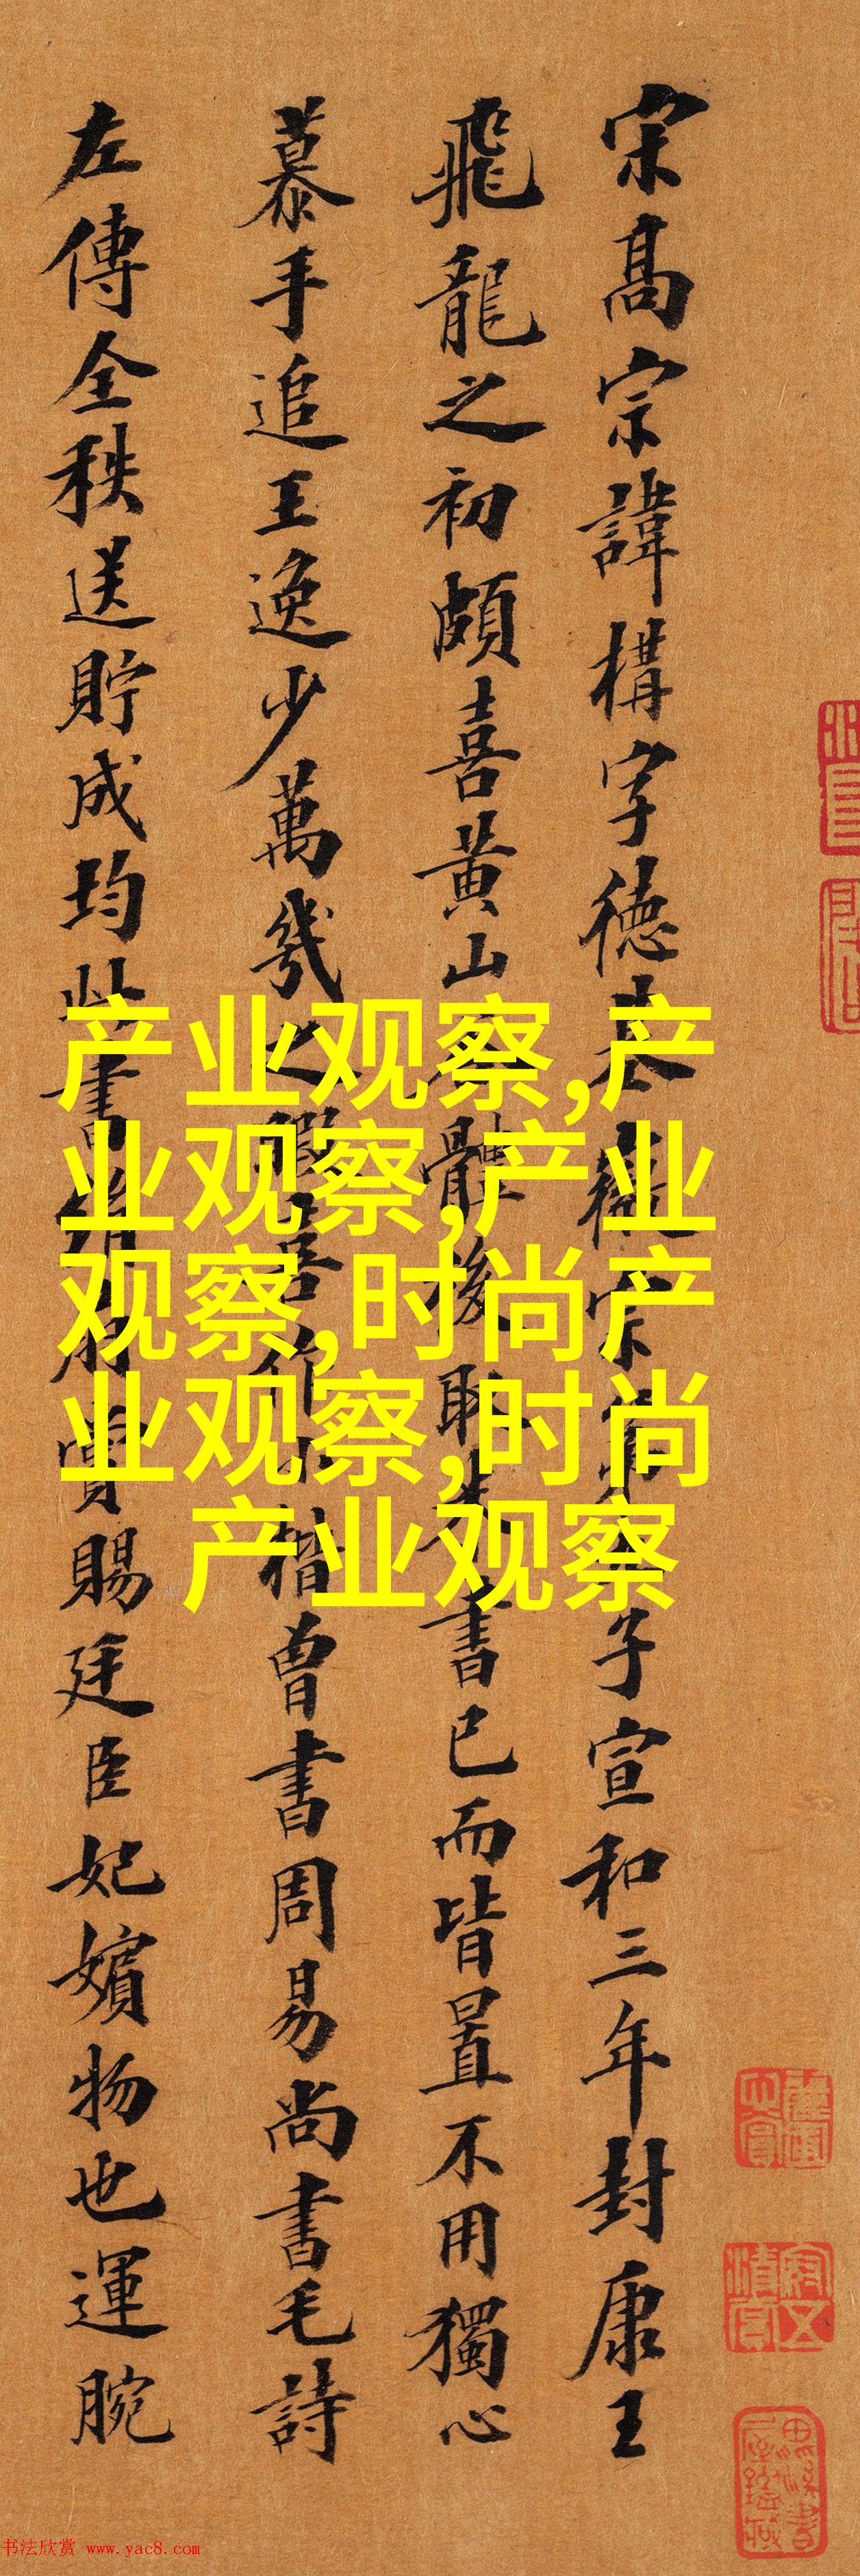 宋高宗諱構字德基徽宗第子宣和三年封康王
飛龍之初頗喜黃山體後耿書已而皆置不用獨心
慕手追王逸少萬幾之暇喜作小楷曾書周易尚書毛詩
左傳全秩送貯成均此書賞賜廷臣妃嬪物也運腕
产业观察,产
业观察,产业
观察,时尚产
业观察,时尚
产业观察
书法欣赏 www.yac8.com